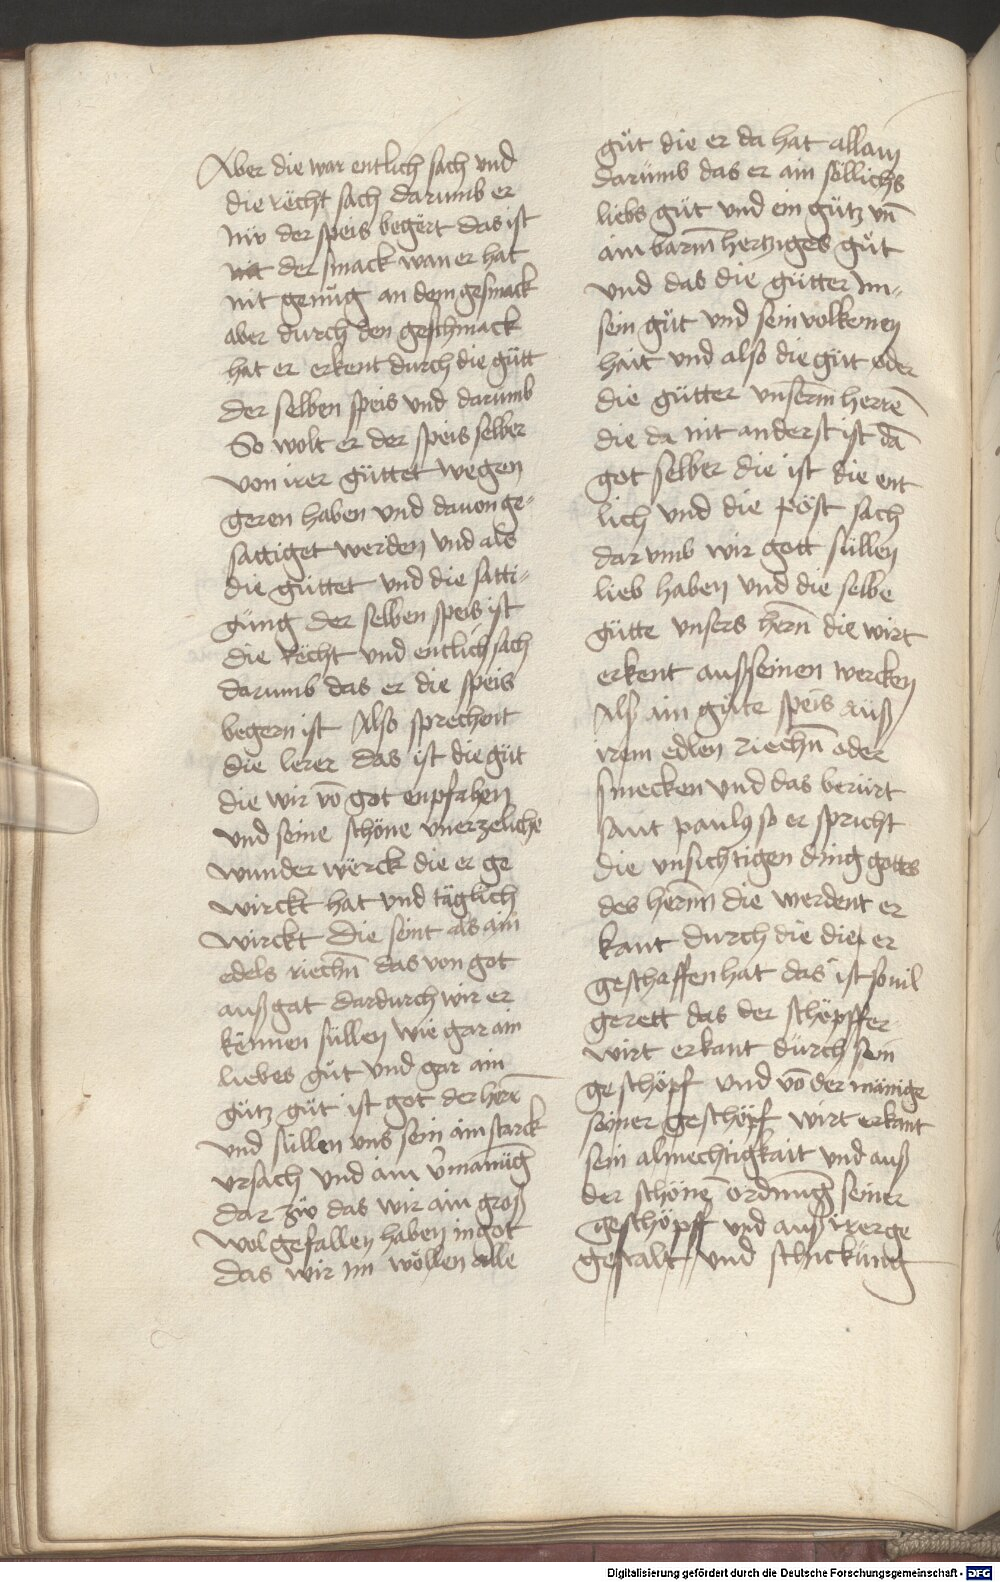 Aber die war entlich sach und
die rëcht sach darumb er
nůr der speis begërt das ist
nit der smack wan er hat
nit genůg an dem gesmack
aber durch den geschmack
hat er erkent durch die gütt
der selben speis und darumb
So wolt er der speis selber
von irer güttet wegen
geren haben und dauon ge-
sattiget werden und als
die güttet und die satti-
gung der selben speis ist
die rëcht und entlich sach
darumb das er die speis
begern ist Also sprechent
die lerer das ist die güt
die wir vō got enpfahen
und seine schöne unerzeliche
wunder wërck die er ge
wirckt hat und täglich
wirckt Die seint als ain
edels riechn̄ das von got
auß gat dardurch wir er
kennen süllen wie gar ain
liebes gůt und gar ain
gůtz gůt ist got der herr
und süllen uns sein ain starck
ursach und ain
dar zů das wir ain groß
wolgefallen haben in got
das wir im wöllen alle
gůt die er da hat allain
darumb das er ain söllichs
liebs gůt und ein gůtz vn̄
ain barm̄hertziges gůt
und das die gütter im-
sein gůt und sein volkomen
hait und also die güt oder
die gütter unserm̄ herrē
die da nit anderst ist dā
got selber die ist die ent
lich und die pöst sach
darumb wir gott süllen
lieb haben und die selbe
gütte unsers hern̄ die wirt
erkent auß seinen wercken
Als ain gůte speis auß
irem edlen riechn̄ oder
smecken und das berürt
sant paulus so er spricht
die unsichtigen ding gottes
des herrn̄ die werdent er
kant durch die die er
geschaffen hat das ist souil
gerett das der schöpffer
wirt erkant durch sein
geschöpf und vō der mänige
seiner geschöpf wirt erkant
sein almechtigkait und auß
der schönē ordnung seiner
geschöpff und auß irer ge
gestalt und schickung
Digitalisierung gefördert durch die Deutsche Forschungsgemeinschaft - DFG